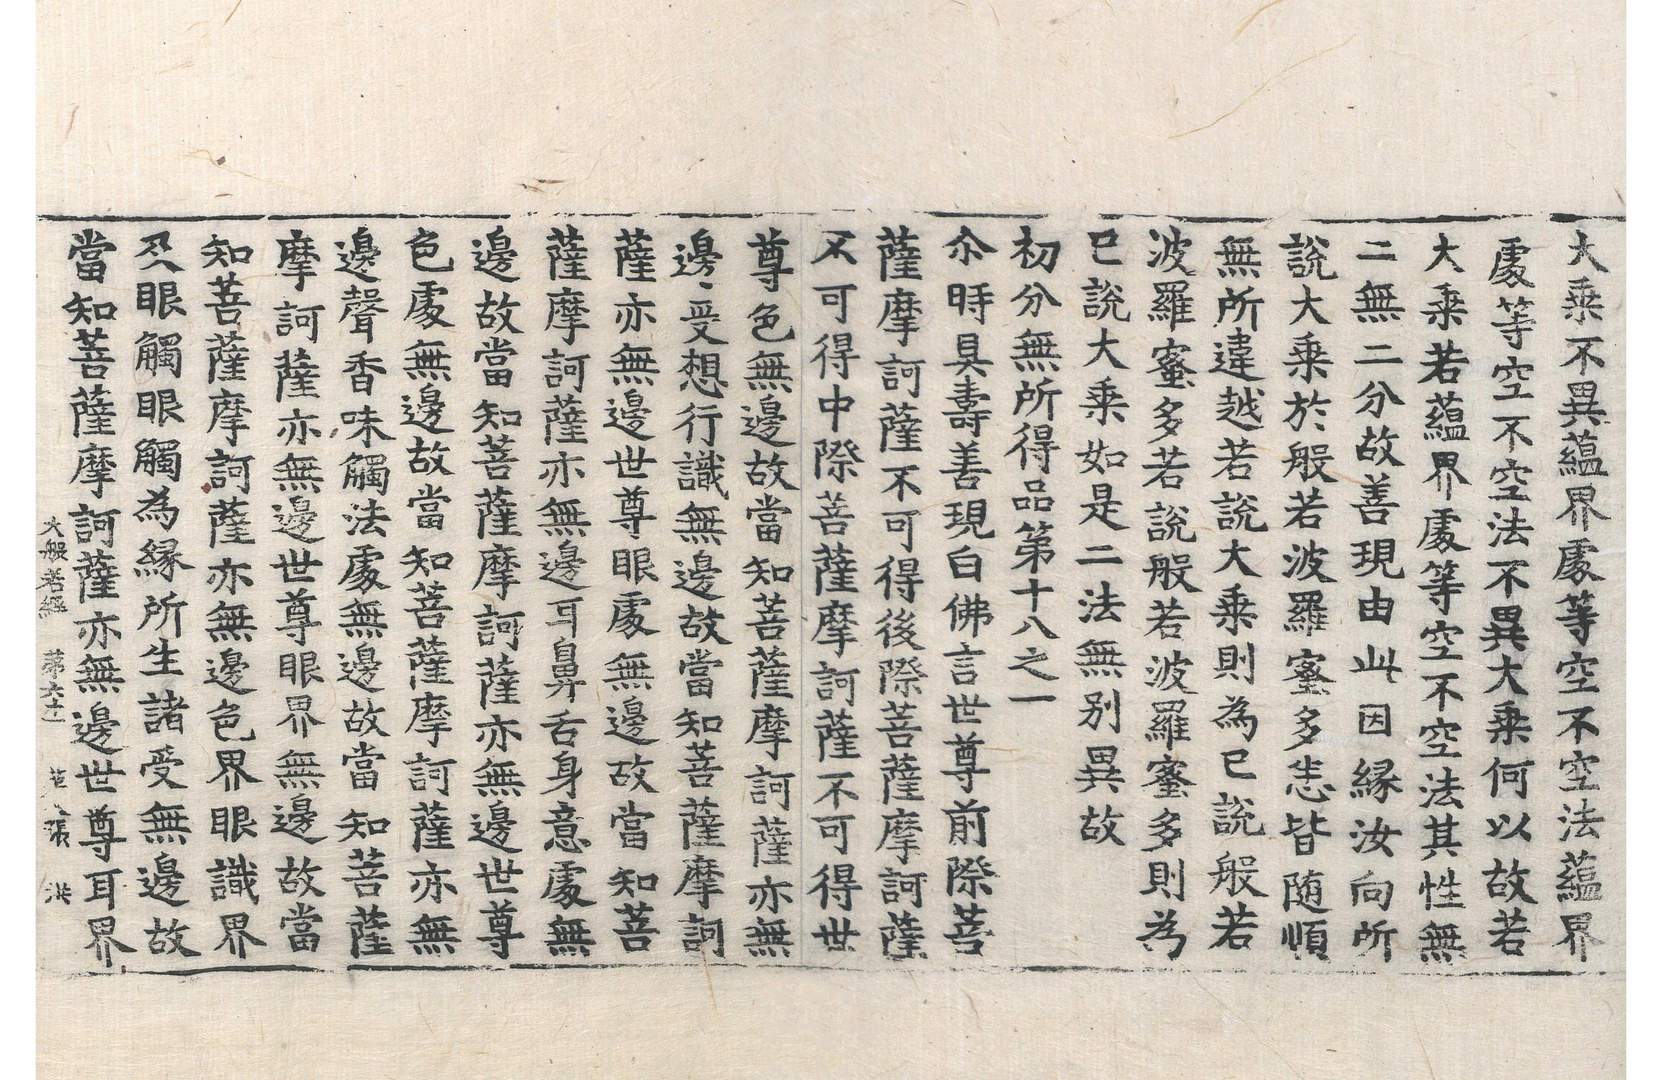 大乘不異蘊界處等空不空法蘊界
處等空不空法不異大乘何以故若
大乘若蘊界處等空不空法其性無
二無二分故善現由此因緣汝向所
說大乘於般若波羅蜜多悉皆随順
無所違越若說大乘則為已說般若
波羅蜜多若說般若波羅蜜多則為
已說大乘如是二法無別異故
初分無所得品第十八之一
尒時具壽善現白佛言世尊前際菩
薩摩訶薩不可得後際菩薩摩訶薩
不可得中際菩薩摩訶薩不可得世
尊色無邊故當知菩薩摩訶薩亦無
邊受想行識無邊故當知菩薩摩訶
薩亦無邊世尊眼處無邊故當知菩
薩摩訶薩亦無邊耳鼻舌身意處無
邊故當知菩薩摩訶薩亦無邊世尊
色處無邊故當知菩薩摩訶薩亦無
邊聲香味觸法處無邊故當知菩薩
摩訶薩亦無邊世尊眼界無邊故當
知菩薩摩訶薩亦無邊色界眼識界
及眼觸眼觸為緣所生諸受無邊故
當知菩薩摩訶薩亦無邊世尊耳界
大般若經 第六十一 張 洪